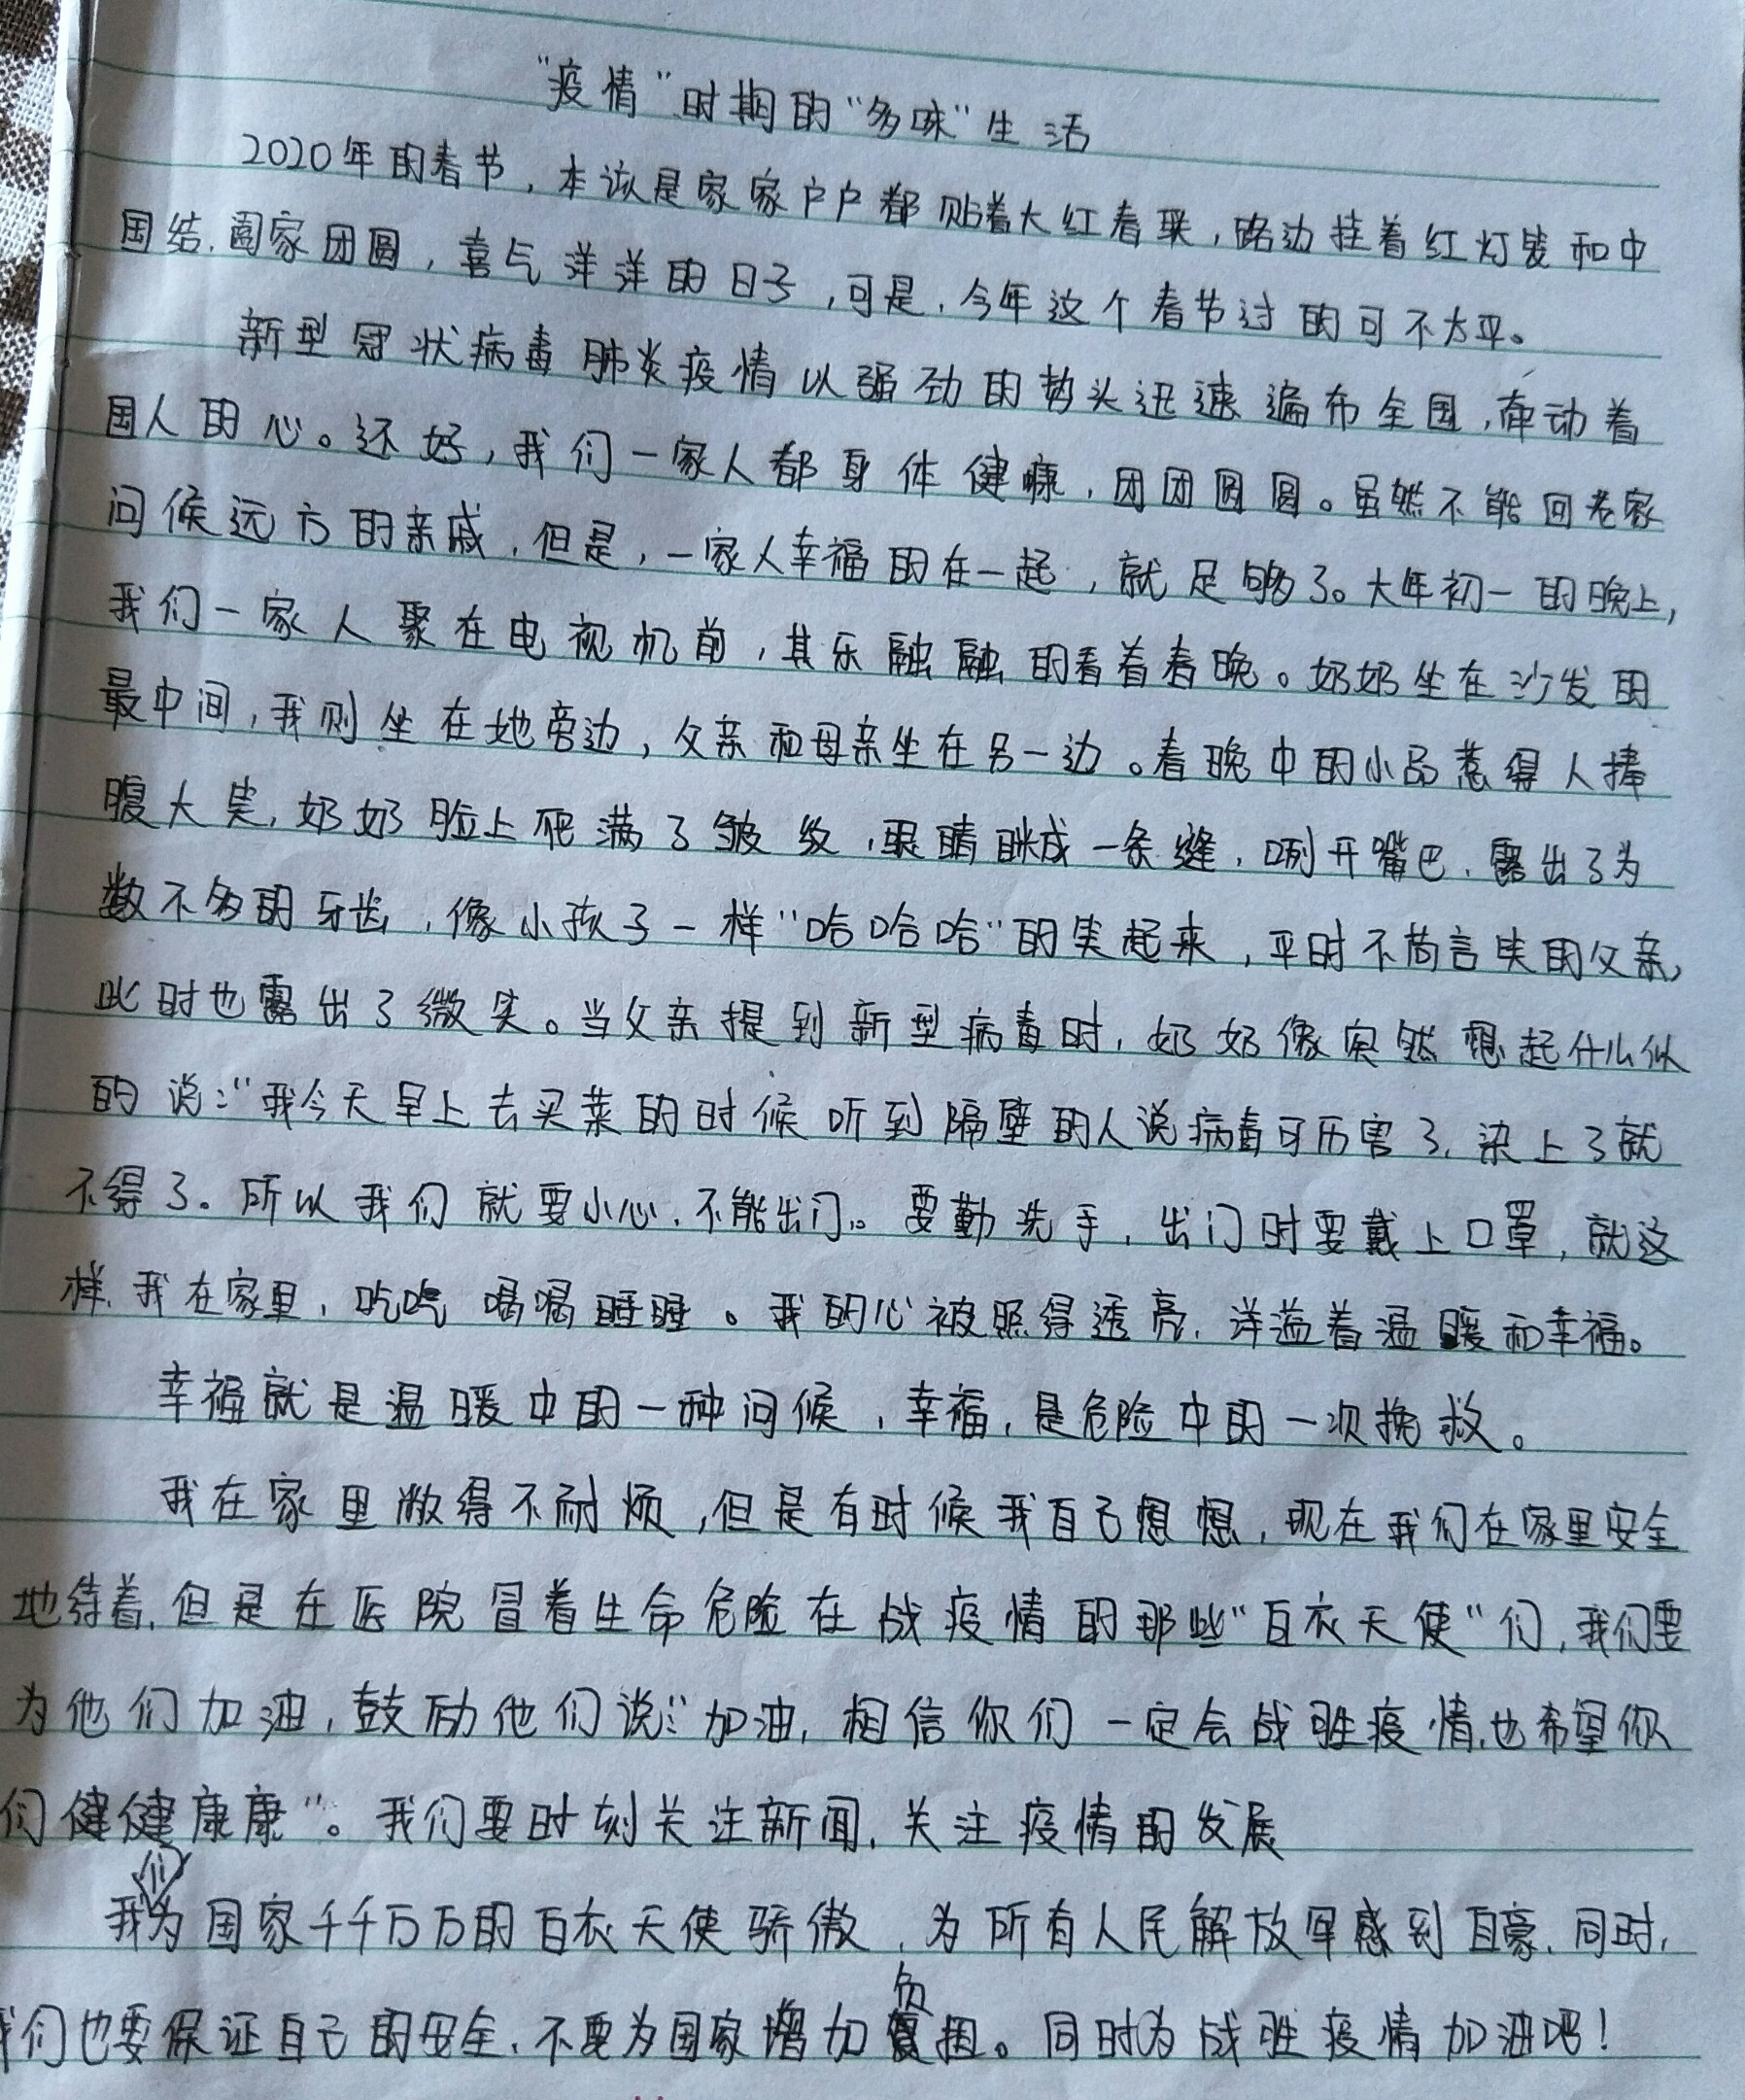 “疫情”时期的“多味”生活
2020年的春节，本该是家家户户都贴着大红春联，路边挂着红灯笼和中
国结，阖家团圆，喜气洋洋的日子，可是，今年这个春节过的可不太平。
新型冠状病毒肺炎疫情以强劲的势头迅速遍布全国，牵动着
国人的心。还好，我们一家人都身体健康，团团圆圆。虽然不能回老家
问候远方的亲戚，但是，一家人幸福的在一起，就足够了。大年初一的晚上，
我们一家人聚在电视机前，其乐融融的看着春晚。奶奶坐在沙发的
最中间，我则坐在她旁边，父亲和母亲坐在另一边。春晚中的小品惹得人捧
腹大笑，奶奶脸上爬满了皱纹，眼睛眯成一条缝，咧开嘴巴，露出了为
数不多的牙齿，像小孩子一样“哈哈哈”的笑起来，平时不苟言笑的父亲，
此时也露出了微笑。当父亲提到新型病毒时，奶奶像突然想起什么似
的说：“我今天早上去买菜的时候听到隔壁的人说病毒可历害了，染上了就
不得了。所以我们就要小心，不能出门。要勤洗手，出门时要戴上口罩，就这
样，我在家里，吃吃喝喝睡睡。我的心被照得透亮，洋溢着温暖和幸福。
幸福就是温暖中的一种问候，幸福，是危险中的一次挽救。
我在家里憋得不耐烦，但是有时候我自己想想，现在我们在家里安全
地待着，但是在医院冒着生命危险在战疫情的那些“白衣天使”们，我们要
为他们加油，鼓励他们说：“加油，相信你们一定会战胜疫情，也希望你
们健健康康”。我们要时刻关注新闻，关注疫情的发展
我们为国家千千万万的白衣天使骄傲，为所有人民解放军感到自豪，同时，
我们也要保证自己的安全，不要为国家增加负担。同时为战胜疫情加油吧！